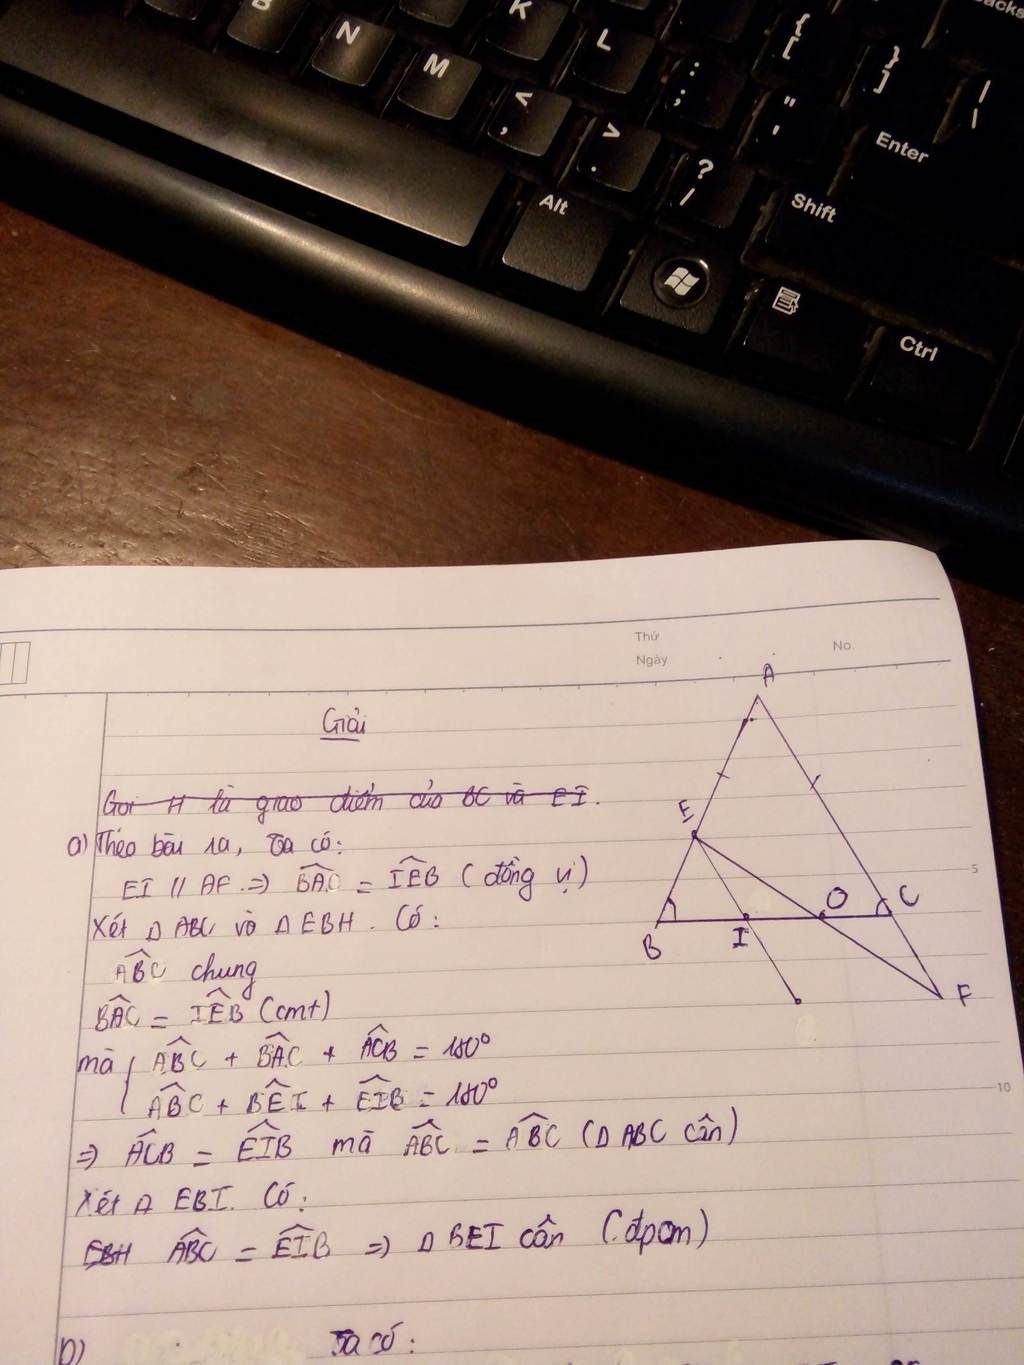 B
N
M
K
L
<
,
>
.
:
;
"
'
?
/
{
[
}
]
|
\
Enter
Shift
Alt
Ctrl
Thứ
Ngày
No.
Giải
Gọi H là giao điểm của BC và EI.
a) Theo bài ra, Ta có:
EI // AF => BAC = IEB (đồng vị)
Xét Δ ABC và Δ EBH. Có:
ABC chung
BAC = IEB (cmt)
mà { ABC + BAC + ACB = 180°
ABC + BEI + EIB = 180°
=> ACB = EIB mà ABC = ABC (Δ ABC cân)
Xét Δ EBI. Có:
EBH ABC = EIB => Δ BEI cân (đpcm)
b) Ta có:
A
E
B
I
O
C
F
5
10